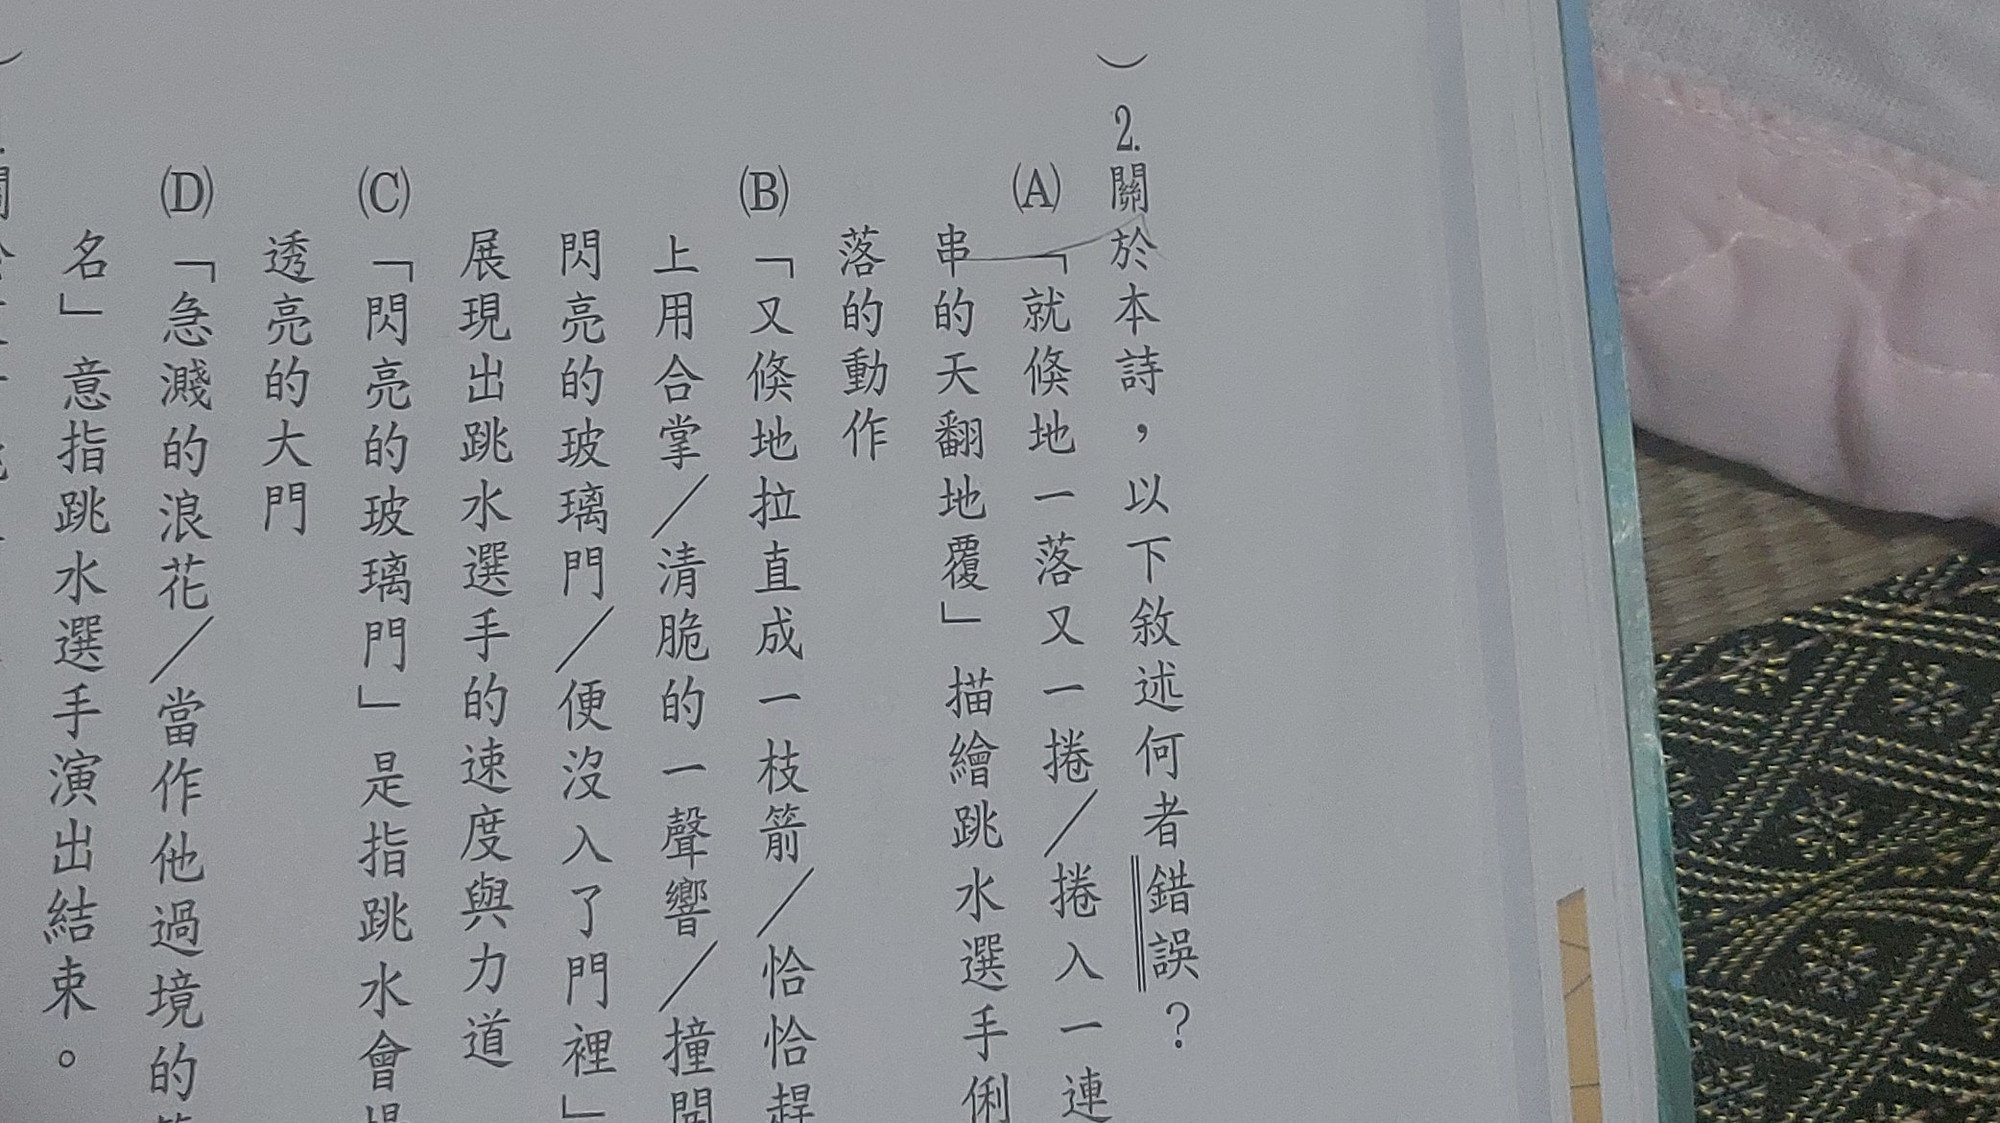 ）2.關於本詩，以下敘述何者錯誤？
(A)「就倏地一落又一捲／捲入一連
串的天翻地覆」描繪跳水選手俐
落的動作
(B)「又倏地拉直成一枝箭／恰恰趕
上用合掌／清脆的一聲響／撞開
閃亮的玻璃門／便沒入了門裡」
展現出跳水選手的速度與力道
(C)「閃亮的玻璃門」是指跳水會場
透亮的大門
(D)「急濺的浪花／當作他過境的簽
名」意指跳水選手演出結束。